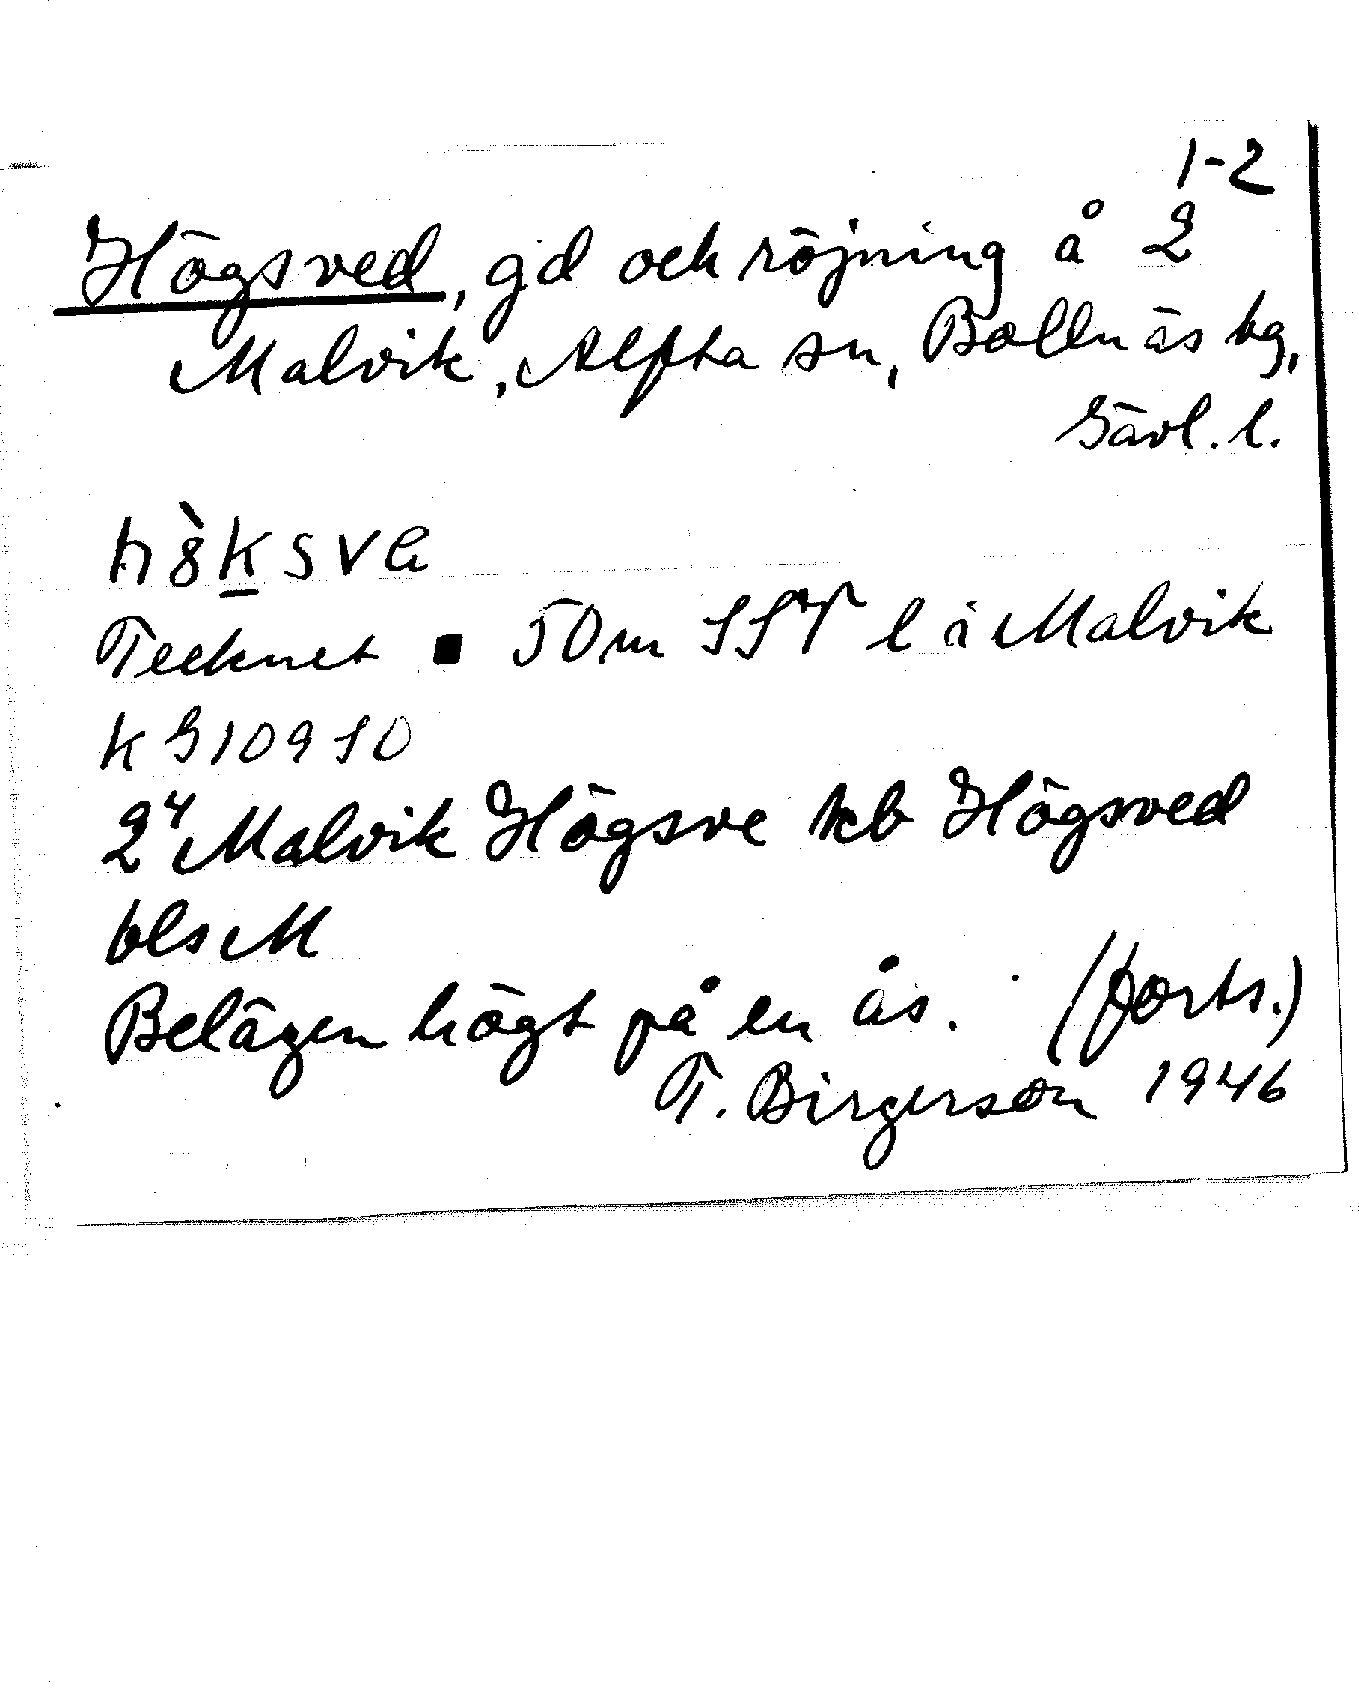 1-2
Högsved, gd och röjning å 2
Malvik, Alfta sn, Bollnäs kg,
Gävl. l.
Tecknet ■ 50 m l å Malvik
K G 10910
2⁴ Malvik Högsve kb Högsved
bls M
Belägen högt på en ås. (forts.)
T. Birgerson 1946